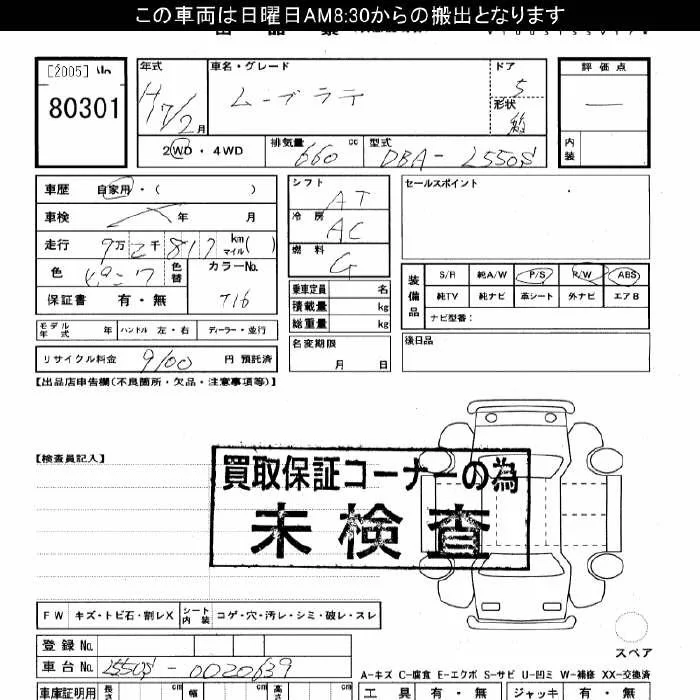 この車両は日曜日AM8:30からの搬出となります
[2005]
80301
年式
H17/2月
車名・グレード
ムーブラテ
ドア
5
形状
評価点
—
内装
2WD・4WD
排気量
660 cc
型式
DBA-L550S
車歴 自家用・( )
車検 年 月
走行 9万2千817 km マイル( )
色 ピンク 色替
カラーNo.
T16
保証書 有・無
シフト
AT
冷房
AC
燃料
G
乗車定員 名
積載量 kg
総重量 kg
セールスポイント
装備品
S/R 純A/W P/S R/W ABS
純TV 純ナビ 革シート 外ナビ エアB
ナビ型番:
モデル年式 年 ハンドル 左・右 ディーラー・並行
名変期限
月 日
後日品
リサイクル料金 9100 円 預託済
【出品店申告欄(不良箇所・欠品・注意事項等)】
【検査員記入】
買取保証コーナーの為
未検査
FW キズ・トビ石・割レX シート内装 コゲ・穴・汚レ・シミ・破レ・スレ
スペア
登録No.
車台No. L550S-0020639
A-キズ C-腐食 E-エクボ S-サビ U-凹ミ W-補修 XX-交換済
車庫証明用 長さ cm 幅 cm 高さ cm
工具 有・無 ジャッキ 有・無